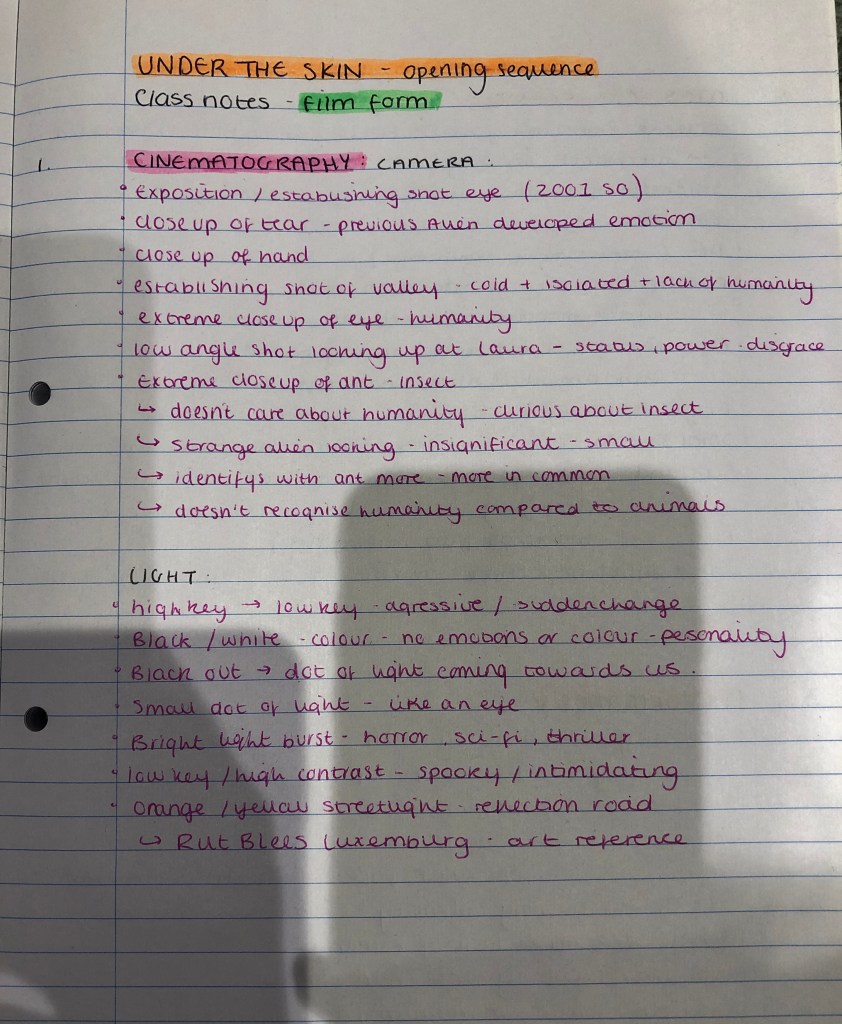 UNDER THE SKIN - opening sequence
Class notes - film form
1. CINEMATOGRAPHY: CAMERA:
• exposition / establishing shot eye (2001 SO)
• close up of tear - previous Alien developed emotion
• close up of hand
• establishing shot of valley - cold + isolated + lack of humanity
• extreme close up of eye - humanity
• low angle shot looking up at Laura - status, power - disgrace
• Extreme closeup of ant - insect
↳ doesn't care about humanity - curious about insect
↳ strange alien looking - insignificant - small
↳ identifys with ant more - more in common
↳ doesn't recognise humanity compared to animals
LIGHT:
• high key → low key - agressive / sudden change
• Black / white - colour - no emotions or colour - pesonality
• Black out → dot of light coming towards us.
• Small dot of light - like an eye
• Bright light burst - horror, sci-fi, thriller
• low key / high contrast - spooky / intimidating
• Orange / yellow streetlight - reflection road
↳ Rut Blees Luxemburg - art reference